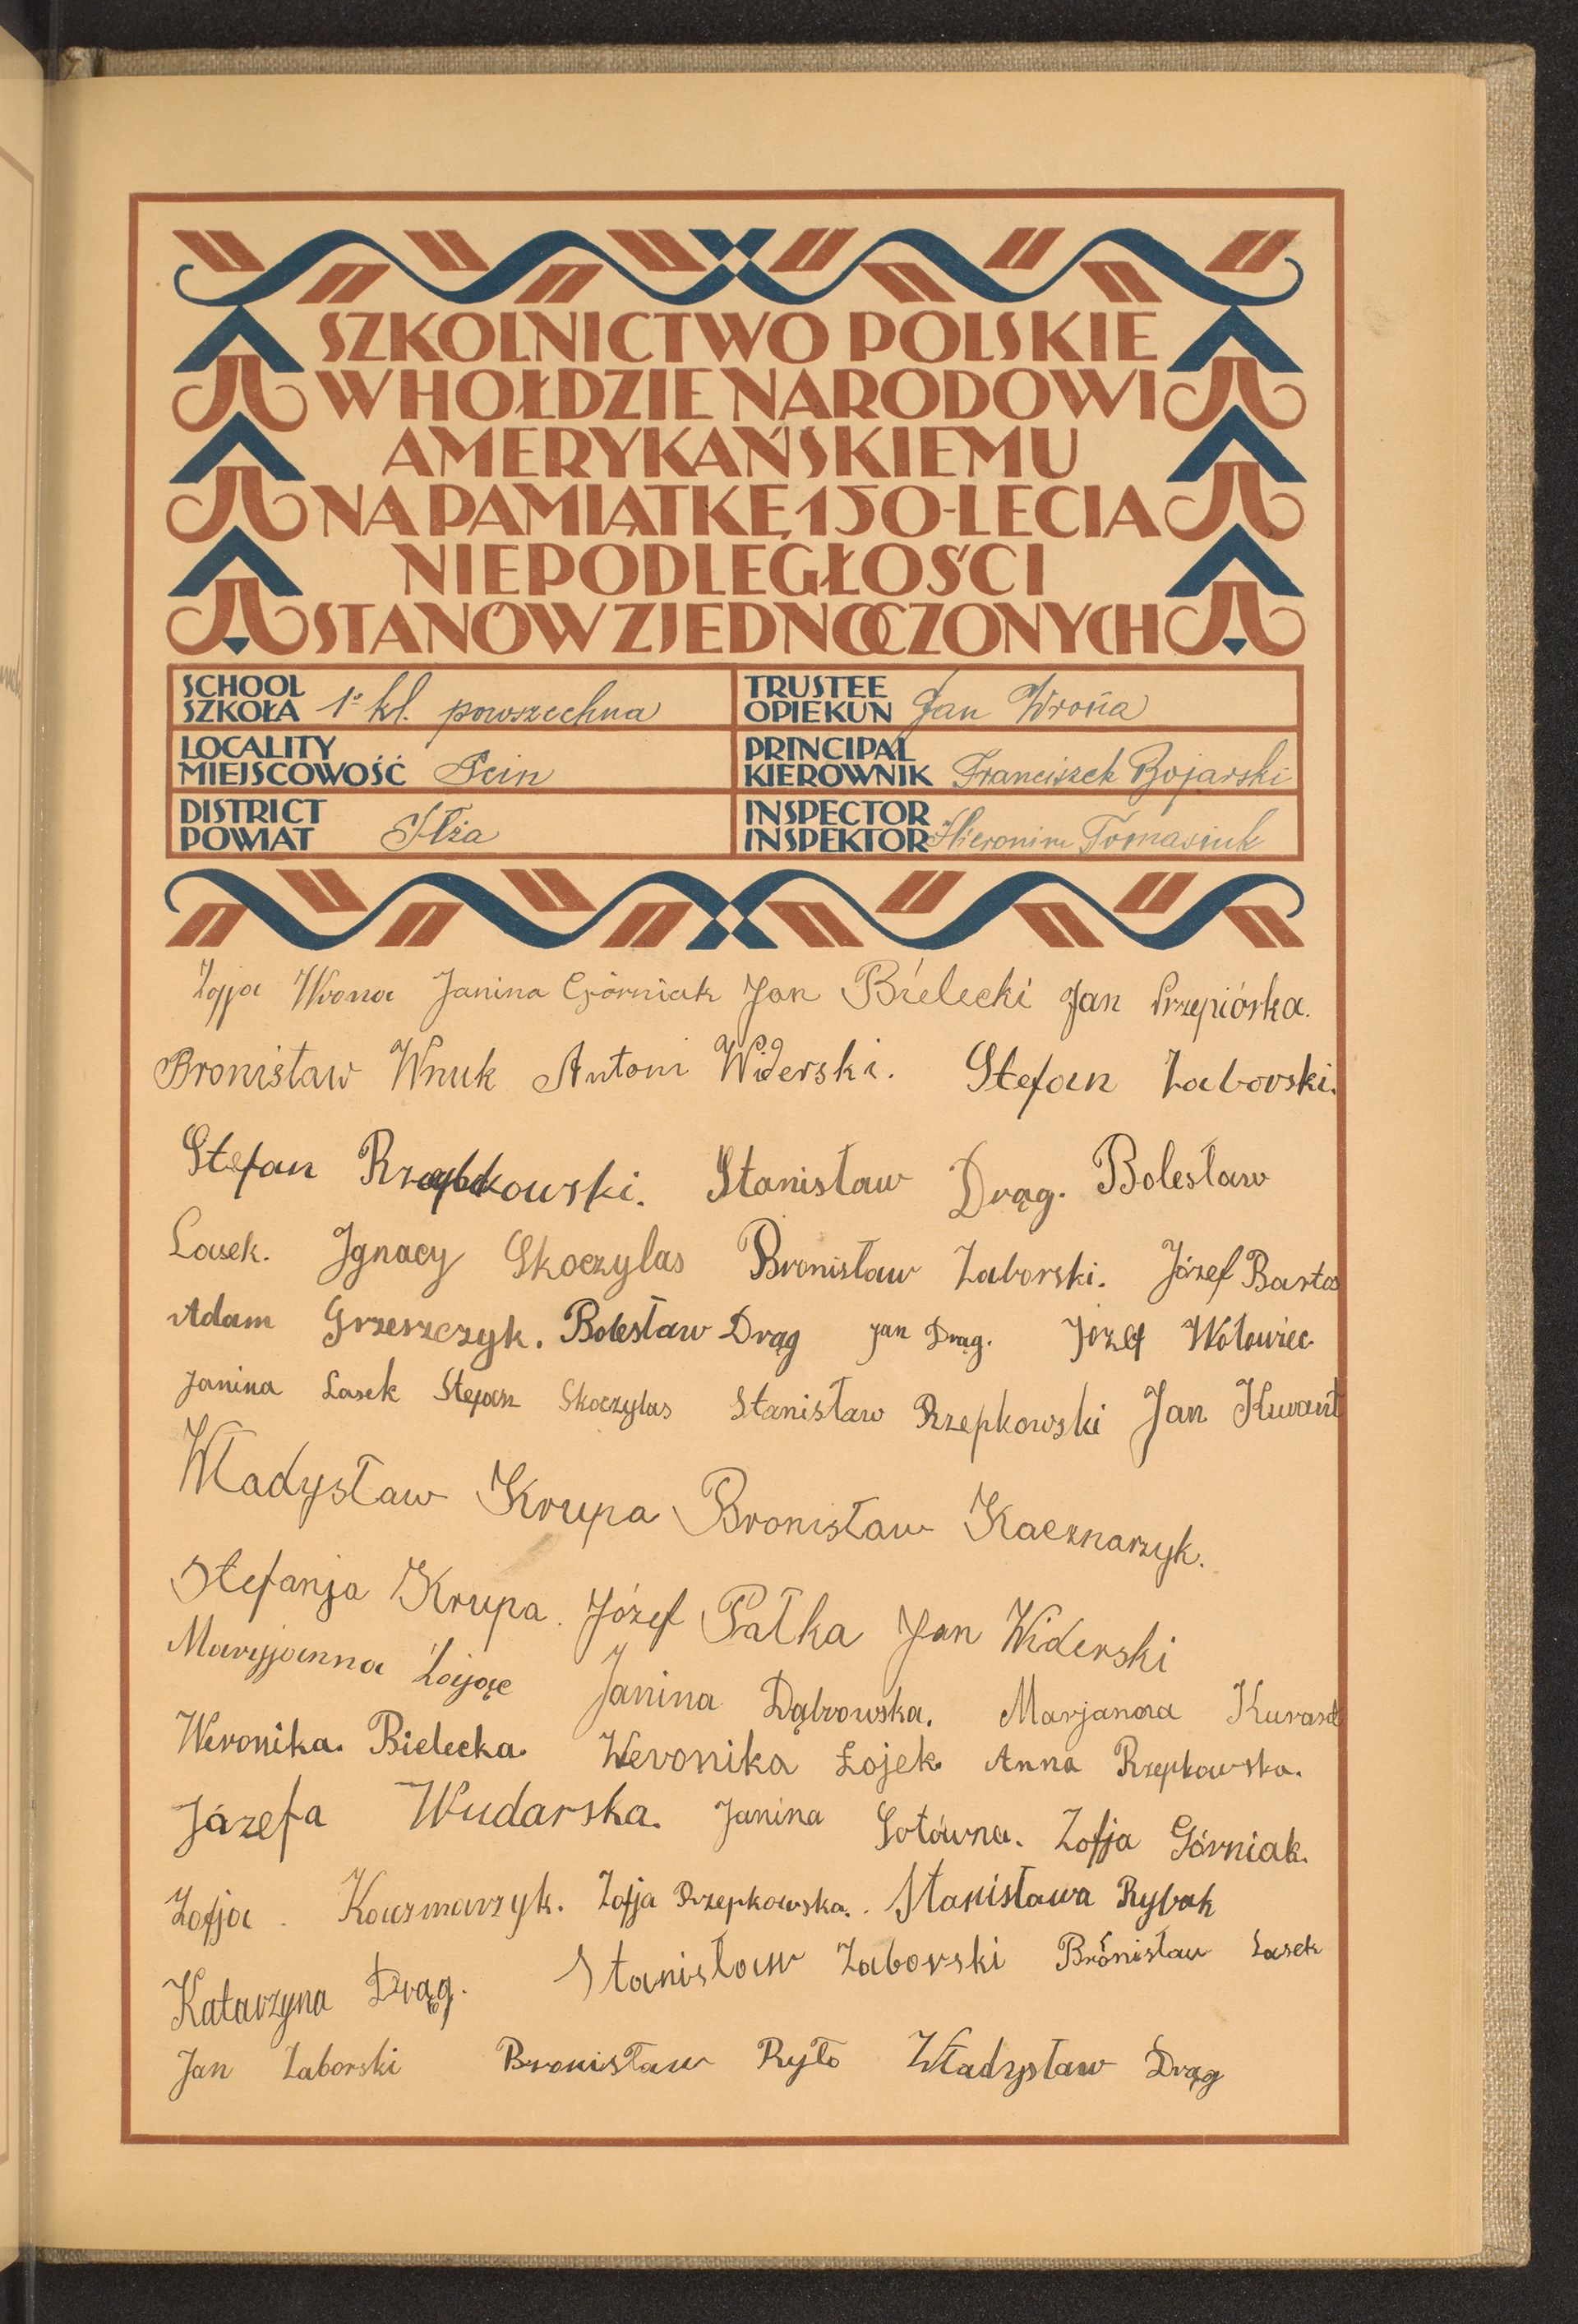 SZKOLNICTWO POLSKIE
W HOŁDZIE NARODOWI
AMERYKAŃSKIEMU
NA PAMIĄTKĘ 150-LECIA
NIEPODLEGŁOŚCI
STANÓW ZJEDNOCZONYCH
SCHOOL
SZKOŁA 1º kl. powszechna
TRUSTEE
OPIEKUN Jan Wrona
LOCALITY
MIEJSCOWOŚĆ Pcin
PRINCIPAL
KIEROWNIK Franciszek Bojarski
DISTRICT
POWIAT Iłża
INSPECTOR
INSPEKTOR Hieronim Tomasiuk
Zofja Wrona Janina Górniak Jan Bielecki Jan Przepiórka.
Bronisław Wnuk Antoni Widerski. Stefan Zaborski.
Stefan Stanisław Drąg. Bolesław
Lasek. Ignacy Skoczylas Bronisław Zaborski. Józef
Adam Grzeszczyk. Bolesław Drąg Jan Drąg. Józef Wołowiec
Janina Lasek Stefan Skoczylas Stanisław Rzepkowski Jan
Władysław Krupa Bronisław Kacznarzyk.
Stefanja Krupa. Józef Pałka Jan Widerski
Maryjanna Janina Dąbrowska. Marjanna
Weronika. Bielecka. Weronika Łojek. Anna Rzepkowska.
Józefa Wudarska. Janina Zofja Górniak.
Zofja Kaczmarzyk. Zofja Rzepkowska. Stanisława Rybak
Katarzyna Drąg. Stanisław Zaborski Bronisław Lasek
Jan Zaborski Bronisław Ryło Władysław Drąg